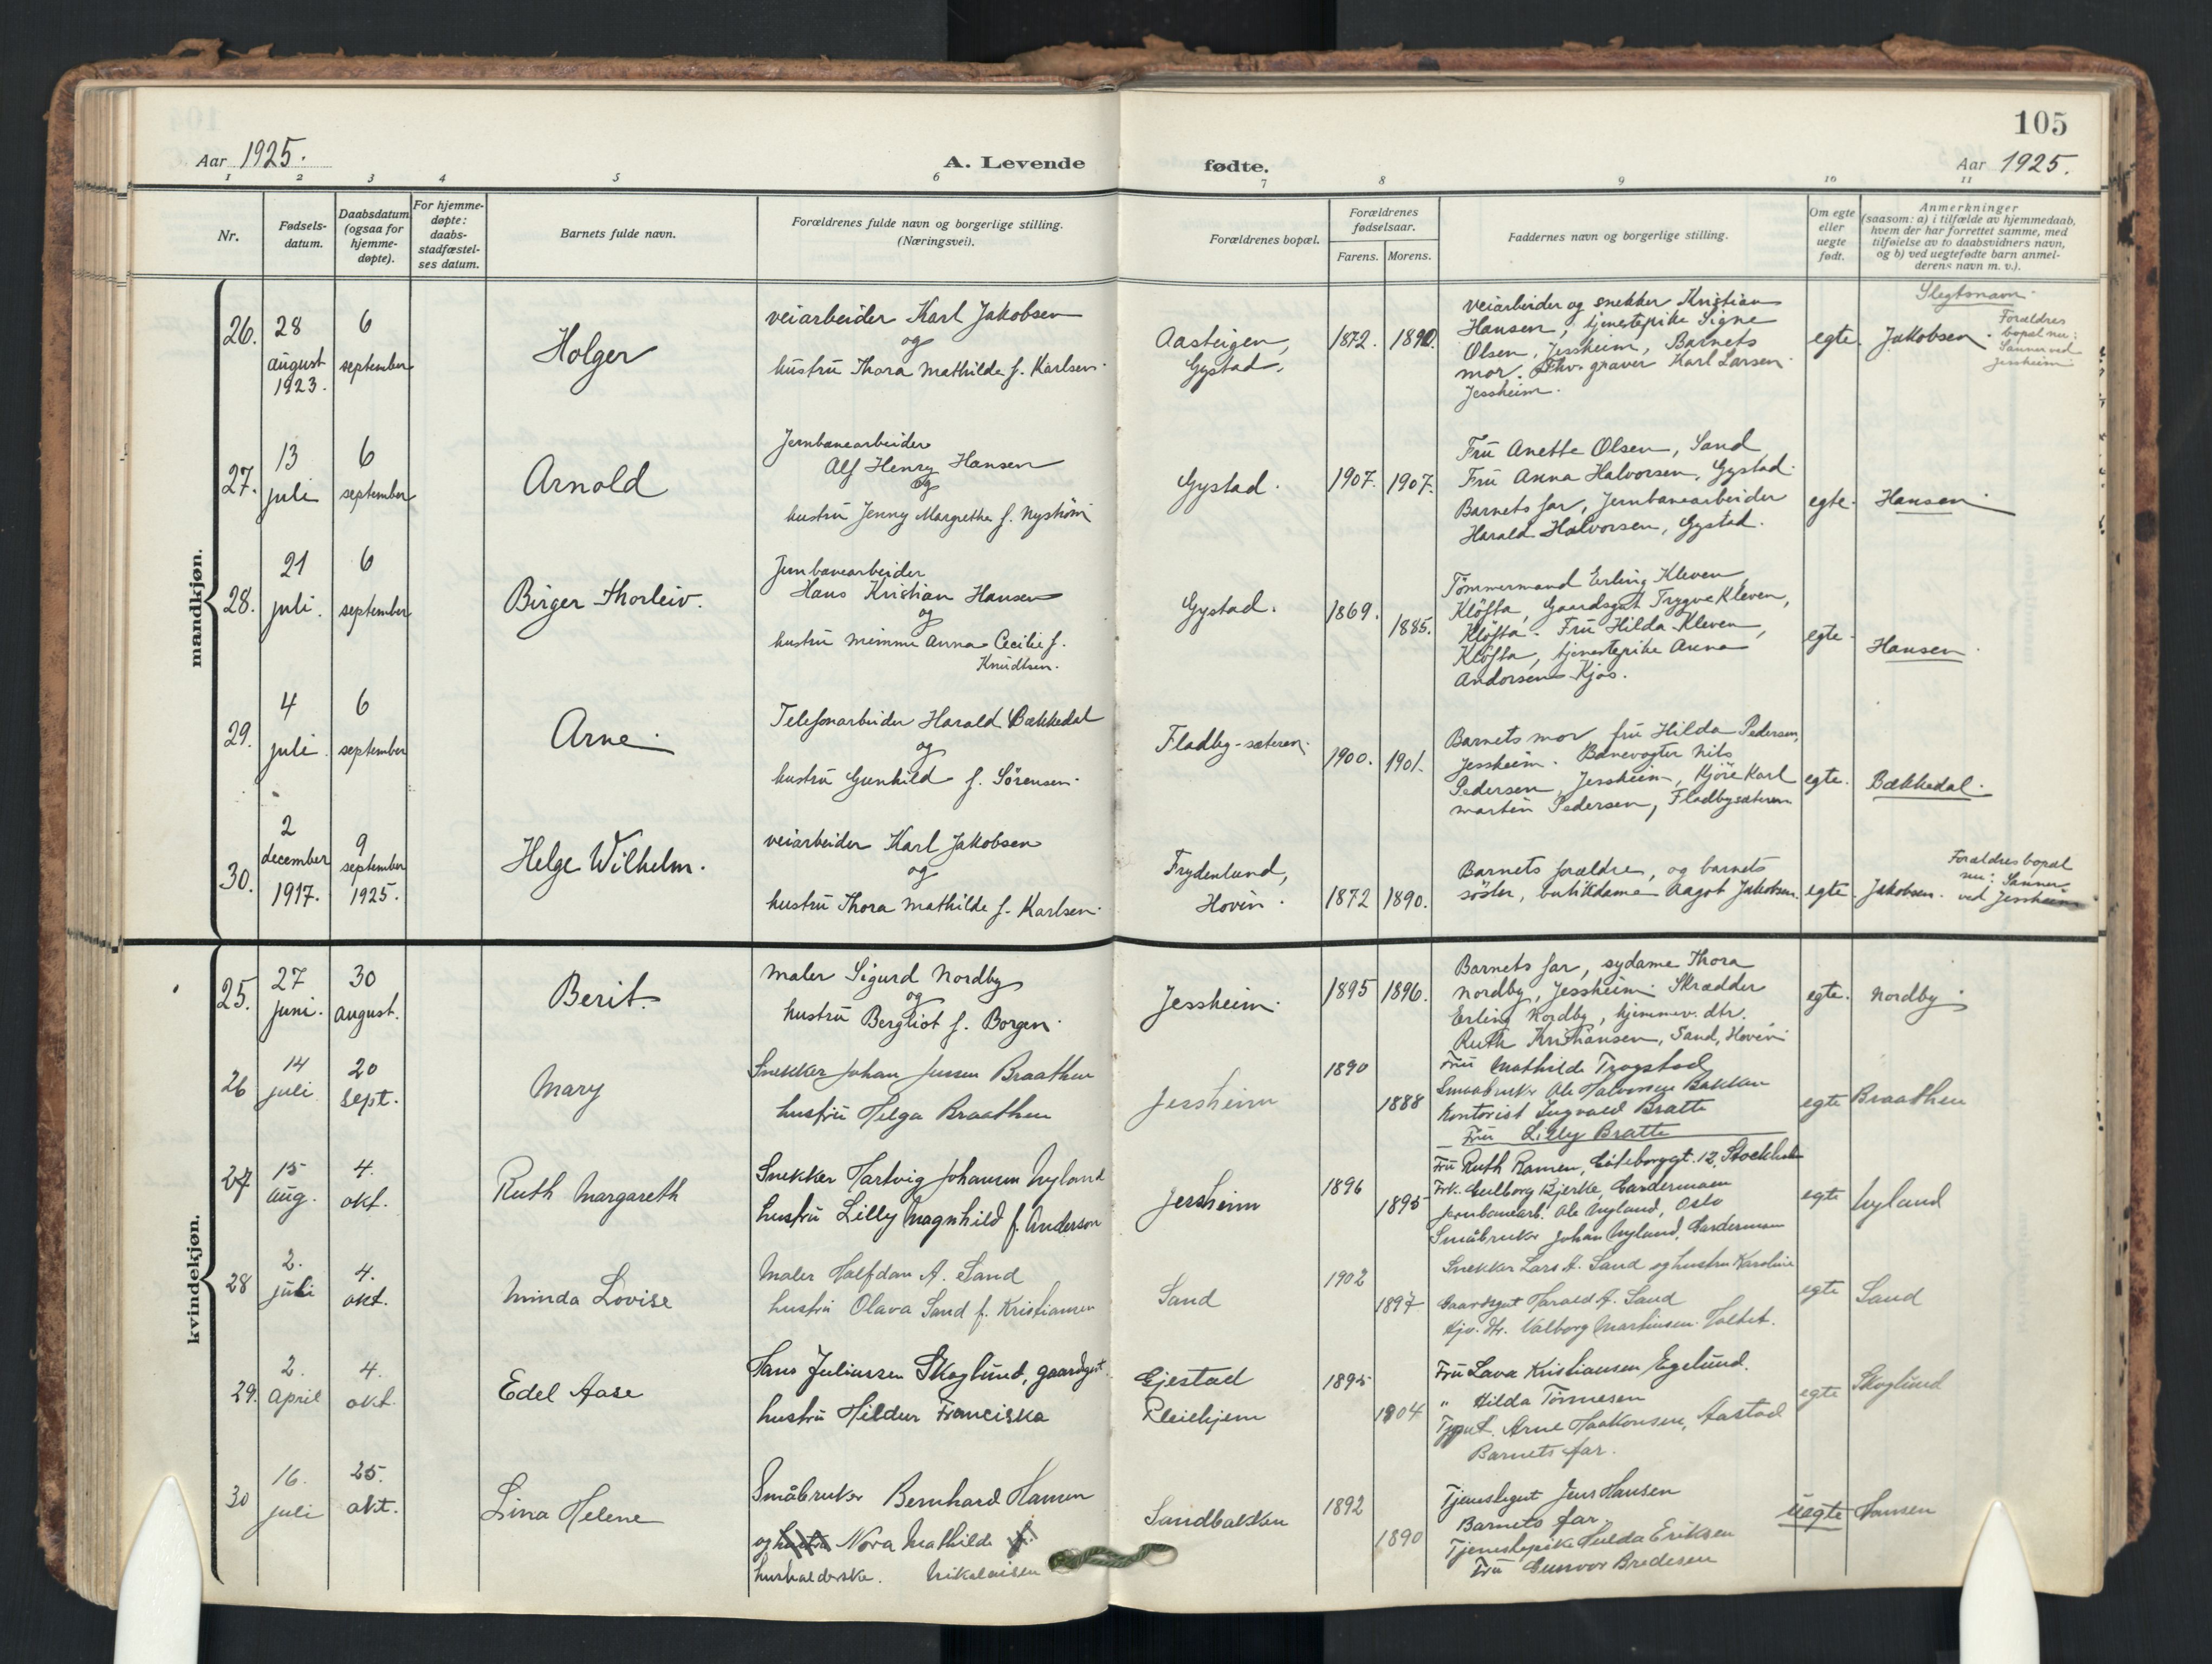 105
Aar 1925.
A. Levende
fødte.
Aar 1925.
1 2 3 4 5 6 7 8 9 10 11
Nr.
Fødsels-
datum.
Daabsdatum
(ogsaa for
hjemme-
døpte).
For hjemme-
døpte:
daabs-
stadfæstel-
ses datum.
Barnets fulde navn.
Forældrenes fulde navn og borgerlige stilling.
(Næringsvei).
Forældrenes bopæl.
Forældrenes
fødselsaar.
Farens. Morens.
Faddernes navn og borgerlige stilling.
Om egte
eller
uegte
født.
Anmerkninger
(saasom: a) i tilfælde av hjemmedaab,
hvem der har forrettet samme, med
tilføielse av to daabsvidners navn,
og b) ved uegtefødte barn anmel-
derens navn m. v.).
mandkjøn.
26.
28
august
1923.
6
september
Holger
veiarbeider Karl Jakobsen
og
hustru Thora Mathilde f. Karlsen.
Aasteigen,
Gystad.
1872. 1890.
veiarbeider og snekker Kristian
Hansen, tjenestepike Signe
Olsen, Jessheim, Barnets
mor. graver Karl Larsen
Jessheim.
egte.
Slegtsnavn
Jakobsen.
Forældres
bopæl nu:
Sanner ved
Jessheim
27.
13
juli
6
september
Arnold
Jernbanearbeider
Alf Henry Hansen
og
hustru Jenny Margrethe f. Nyström
Gystad.
1907. 1907.
Fru Anette Olsen, Sand
Fru Anna Halvorsen, Gystad.
Barnets far, Jernbanearbeider
Harald Halvorsen, Gystad.
egte.
Hansen
28.
21
juli.
6
september
Birger Thorleiv.
Jernbanearbeider
Hans Kristian Hansen
og
hustru Mimmi Anna Cecilie f.
Knudtsen.
Gystad.
1869. 1885.
Tømmermand Erling Kleven,
Kløfta, Gaardsgut Trygve Kleven,
Kløfta. Fru Hilda Kleven,
Kløfta, tjenestepike Anna
Andorsen Kjos.
egte.
Hansen.
29.
4
juli.
6
september
Arne.
Telefonarbeider Harald Bækkedal
og
hustru Gunhild f. Sörensen.
Fladby-sæteren.
1900. 1901.
Barnets mor, fru Hilda Pedersen,
Jessheim. Banevogter Nils
Pedersen, Jessheim, Karl
Martin Pedersen, Fladbysæteren
egte.
Bækkedal.
30.
2
december
1917.
9
september
1925.
Helge Wilhelm.
veiarbeider Karl Jakobsen
og
hustru Thora Mathilde f. Karlsen.
Frydenlund,
Hovin.
1872 1890.
Barnets forældre, og barnets
søster, butikdame Aagot Jakobsen.
egte.
Jakobsen.
Forældres bopæl
nu: Sanner
ved Jessheim
kvindekjøn.
25.
27
juni.
30
august.
Berit
maler Sigurd Nordby
og
hustru Bergliot f. Borgen.
Jessheim.
1895 1896.
Barnets far, sydame Thora
Nordby, Jessheim. Skrædder
Erling Nordby, hjemmev. dtr.
Ruth Kristiansen, Sand, Hovin.
egte.
Nordby.
26
14
juli
20
sept.
Mary
Snekker Johan Jensen Braathen
hustru Helga Braathen
Jessheim
1890
1888
Fru Mathilde Trogstad
Smaabruker Ole Halvorsen Bakken
Kontorist Ingvald Bratte
Fru Lilly Bratte
egte
Braathen
27
15
aug.
4.
okt.
Ruth Margareth
Snekker Hartvig Johansen Nyland
hustru Lilly Magnhild f. Anderson
Jessheim
1896
1895
Fru Ruth Ramen, Göteborggt. 12, Stockholm
Frk. Gulborg Bjerke, Gardermoen
Jernbanearb. Ole Nyland, Oslo
Småbruker Johan Nyland, Gardermoen
egte
Nyland
28
2.
juli
4.
okt.
Minda Lovise
Maler Halfdan A. Sand
hustru Olava Sand f. Kristiansen
Sand
1902
1897
Snekker Lars A. Sand og hustru Karoline
Gaardsgut Harald A. Sand
Hjv. dtr. Valborg Martinsen Holtet.
egte
Sand
29.
2.
April
4.
okt.
Edel Aase
Hans Juliussen Skoglund, gaardsgut
hustru Hildur Franciska
Gjestad
Pleiehjem
1895
1904
Fru Lava Kristiansen Egelund.
" Hilda Tønnesen
Tjgut. Arne Haakonsen, Aastad
Barnets far.
egte
Skoglund
30
16.
juli
25.
okt.
Lina Helene
Småbruker Bernhard Hansen
og hustru Nora Mathilde f.
husholderske. Nikolaisen
Sandbakken
1892
1890
Tjenestegut Jens Hansen
Barnets far.
Tjenestepike Hulda Eriksen
Fru Gunvor Bredesen
uegte
Hansen